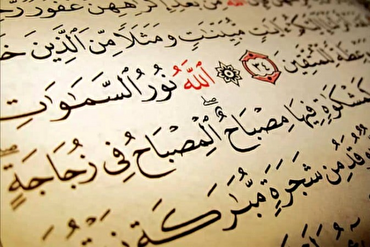 إِكْرَٰهِهِنَّ غَفُورٌ
مُّبَيِّنَٰتٍ وَمَثَلًا مِّنَ ٱلَّذِينَ
لِّلْمُتَّقِينَ ٣٤ ٱللَّهُ نُورُ ٱلسَّمَٰوَٰتِ
كَمِشْكَوٰةٍ فِيهَا مِصْبَاحٌ ٱلْمِصْبَاحُ فِى زُجَاجَةٍ
مِن شَجَرَةٍ مُّبَٰرَكَةٍ